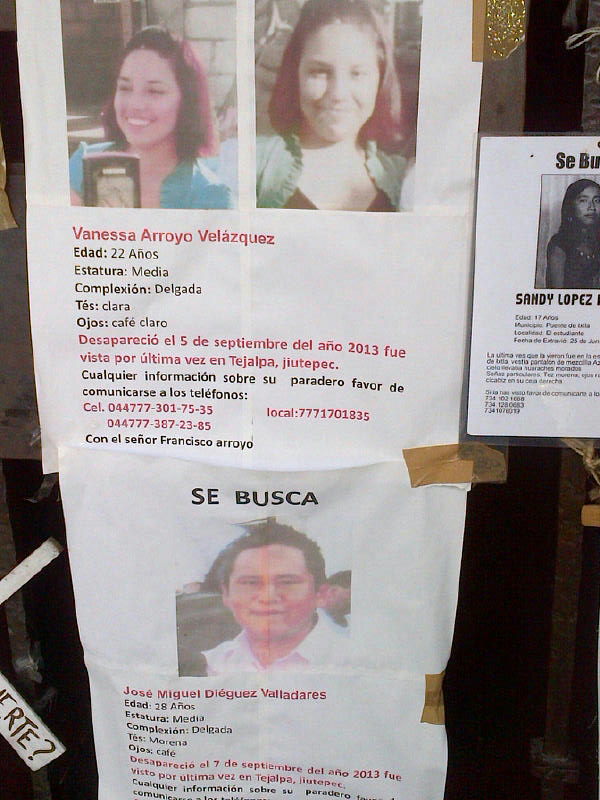 Vanessa Arroyo Velázquez
Edad: 22 Años
Estatura: Media
Complexión: Delgada
Tés: clara
Ojos: café claro
Desapareció el 5 de septiembre del año 2013 fue
vista por última vez en Tejalpa, jiutepec.
Cualquier información sobre su paradero favor de
comunicarse a los teléfonos:
Cel. 044777-301-75-35 local:7771701835
044777-387-23-85
Con el señor Francisco arroyo
SE BUSCA
José Miguel Diéguez Valladares
Edad: 28 Años
Estatura: Media
Complexión: Delgada
Tés: Morena
Ojos: café
Desapareció el 7 de septiembre del año 2013 fue
visto por última vez en Tejalpa, jiutepec.
Cualquier información sobre su paradero favor
comunicarse a los teléfonos
Se Bu
SANDY LOPEZ
Edad: 17 Años
Municipio: Puente de Ixtla
Localidad: El estudiante
Fecha de Extravió: 25 de Jun
La ultima ves que la vieron fue en la es
de Ixtla, vestía pantalón de mezclilla Az
cielo llevaba huaraches morados
Señas particulares: Tez morena, ojos
cicatriz en su ceja derecha.
Si la has visto favor de comunicarte a lo
734 102 1668
734 128 0683
7341078319
ERTE?